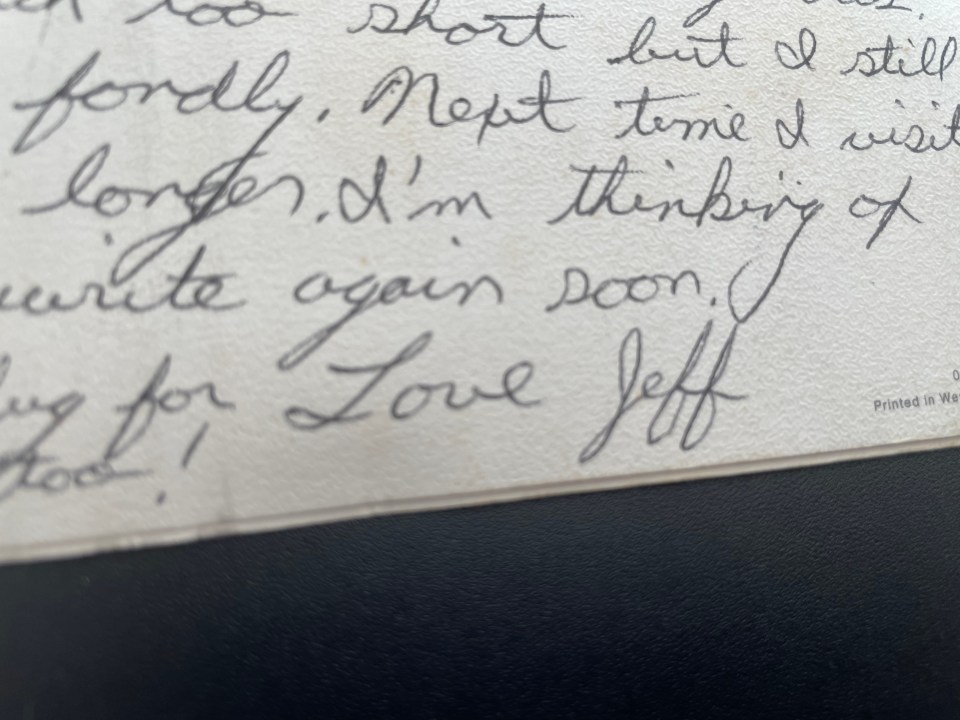 too short but I still
fondly. Next time I visit
longer. I'm thinking of
write again soon.
for Love Jeff
too!
Printed in We